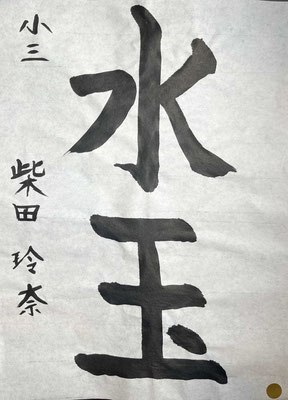 水玉
小三 柴田玲奈